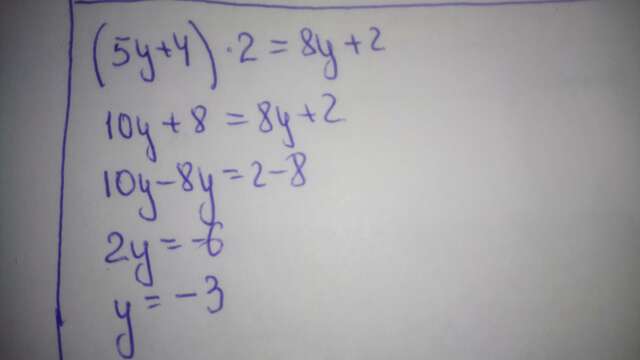 (5y+4)·2=8y+2
10y+8=8y+2
10y-8y=2-8
2y=-6
y=-3